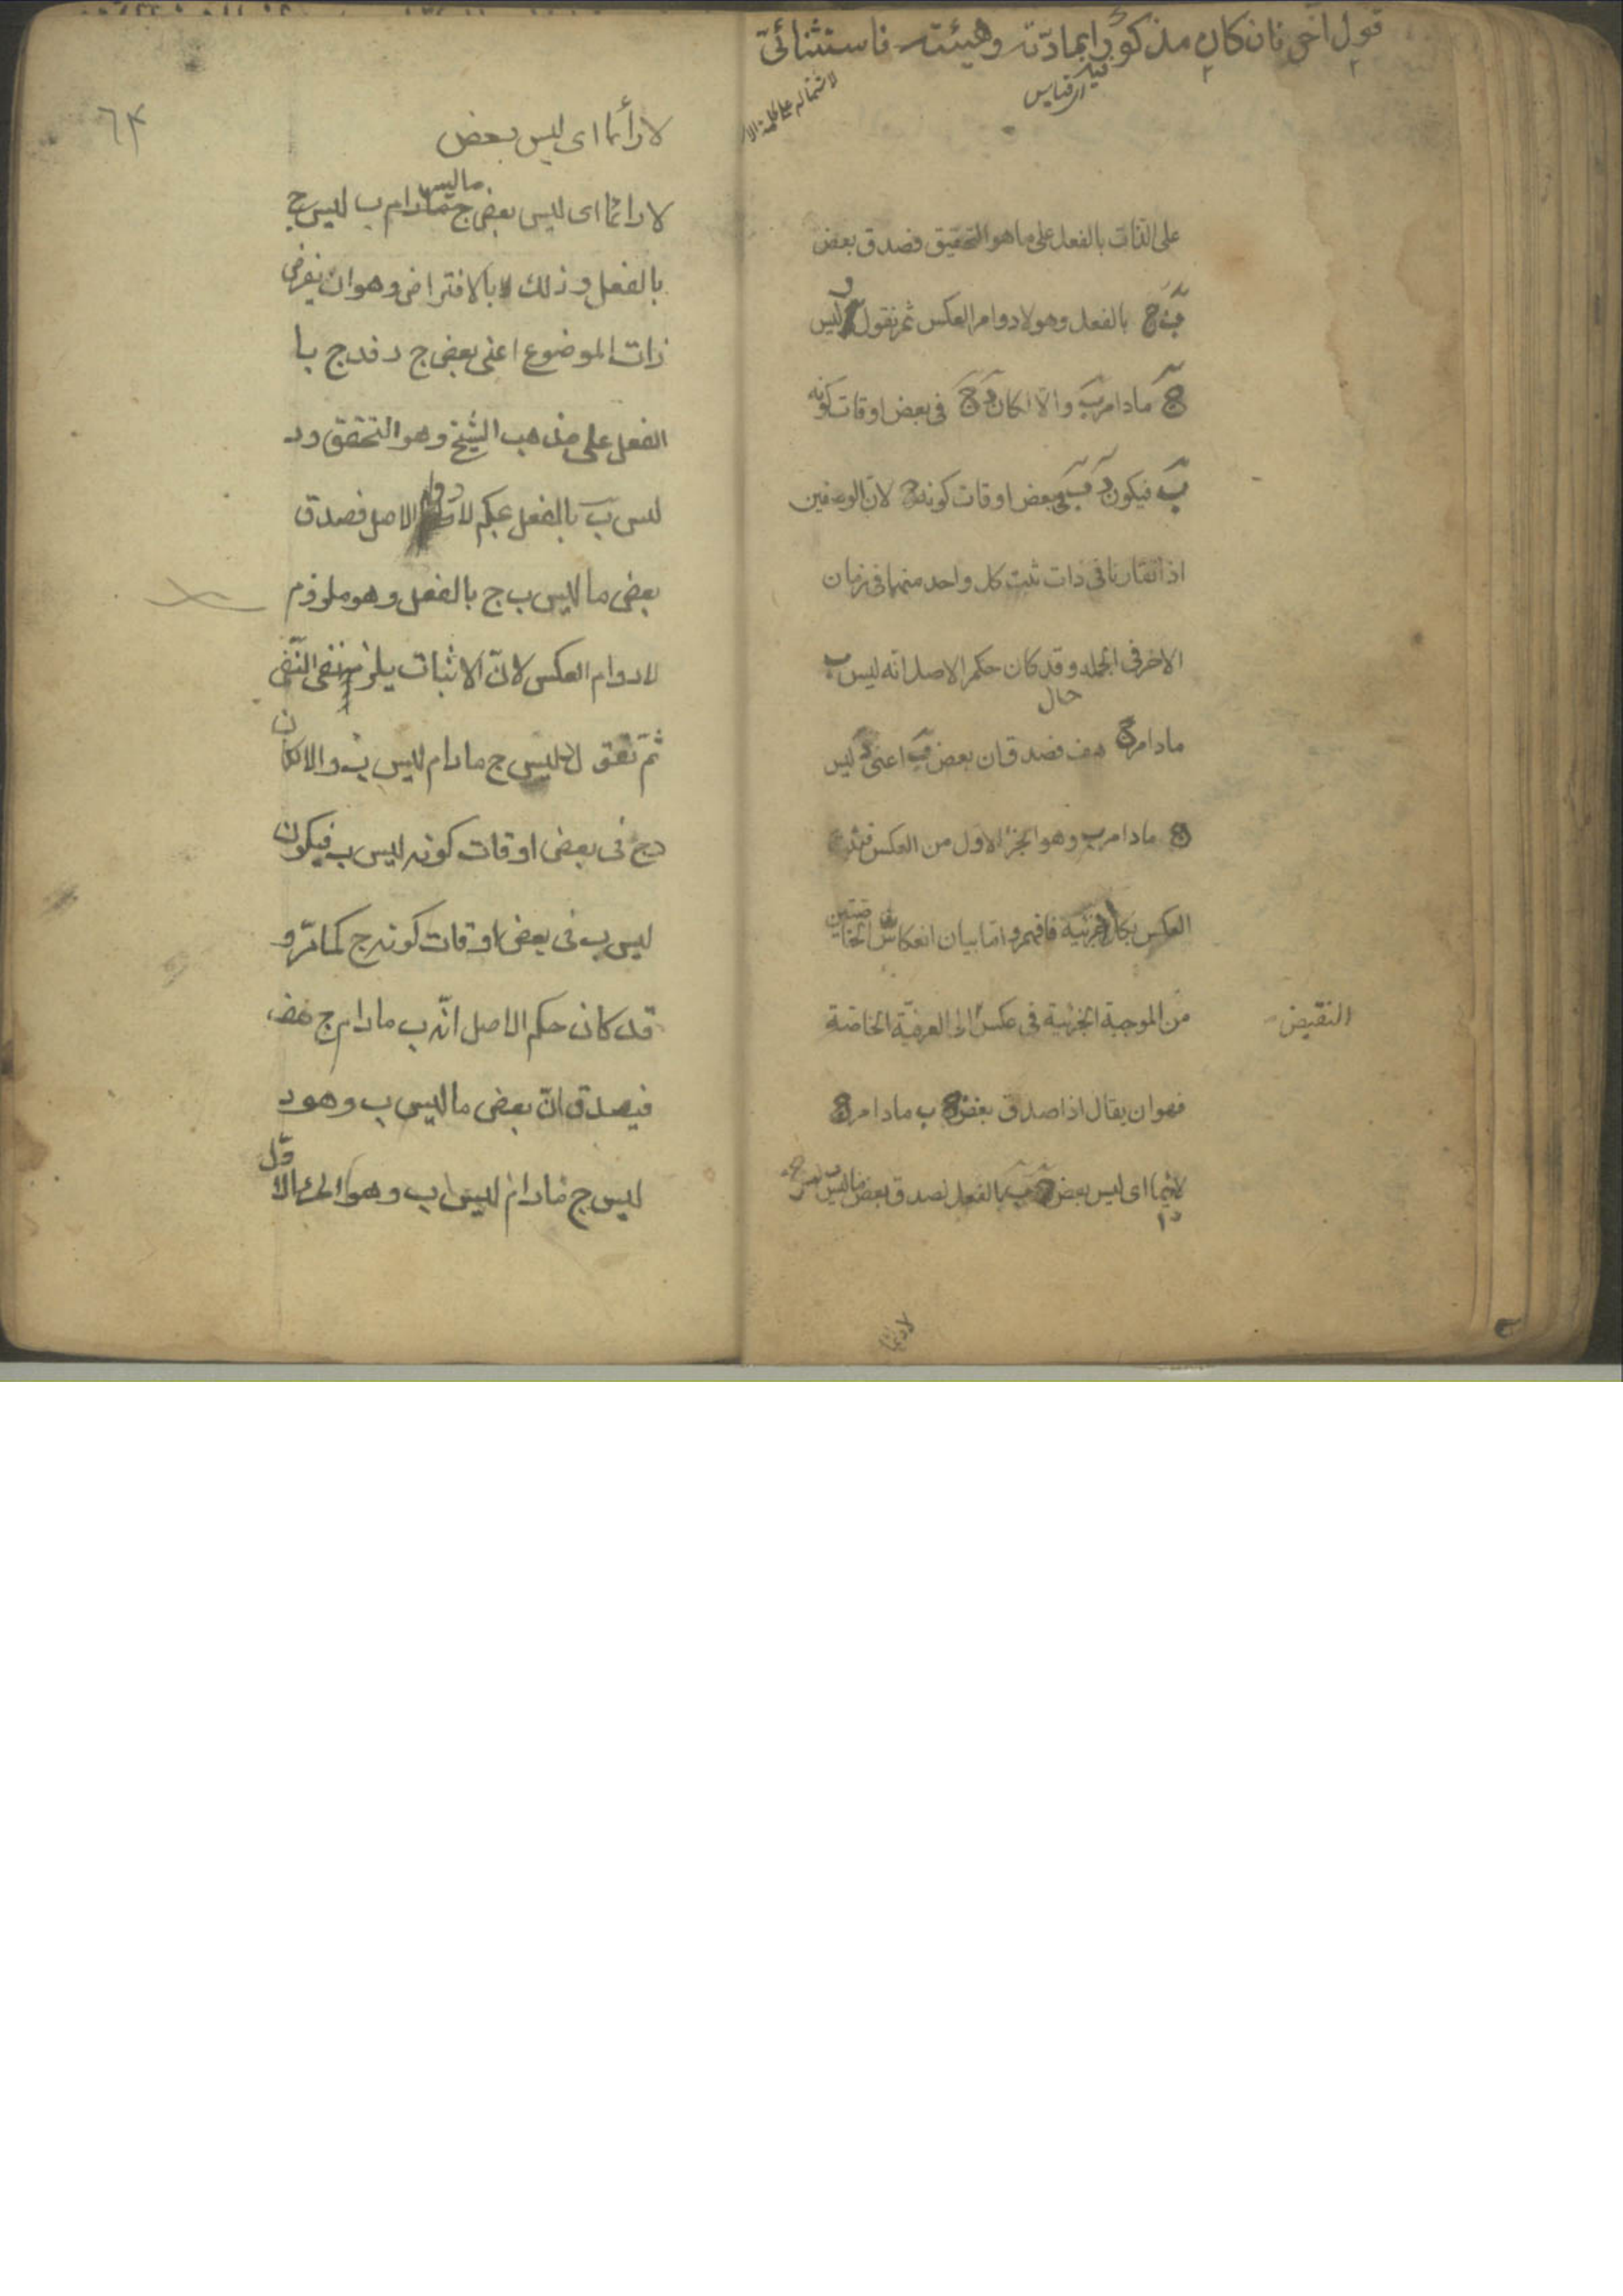 قول آخر فان كان مذكورا بمادّته وهيئته فاستثنائیّ
ای قیاس
لاشتماله علی كلمة الا
على الذات بالفعل على ما هو التحقيق فصدق بعض
ب ج بالفعل وهو لا دوام العكس ثم نقول د ليس
ج ما دام ب والا لكان د ج فى بعض اوقات كونه
ب فيكون د ب فى بعض اوقات كونه ج لان الوصفين
اذا تقارنا فى ذات ثبت كل واحد منهما فى زمان
الاخر فى الجملة وقد كان حكم الاصل انه ليس ب
حال
ما دام ج هف فصدق ان بعض ب اعنى د ليس
ج ما دام ب وهو الجزء الاول من العكس فثبت
العكس بكلا جزئيه فافهم واما بيان انعكاس الخاصتين
من الموجبة الجزئية فى عكس الى العرفية الخاصة
النقيض
فهو ان يقال اذا صدق بعض ج ب ما دام ج
لا دائما اى ليس بعض ج ب بالفعل لصدق بعض ما ليس ب ليس ج
لا دائما
٦٤
لا دائما اى ليس بعض
لا دائما اى ليس بعض ما ليس ج ما دام ب ليس ج
بالفعل وذلك بالافتراض وهو ان يفرض
ذات الموضوع اعنى بعض ج د فد ج با
الفعل على مذهب الشيخ وهو التحقق ود
ليس ب بالفعل بحكم لا دوام الاصل فصدق
بعض ما ليس ب ج بالفعل وهو ملزوم
لا دوام العكس لانّ الاثبات يلزمه نفى النّفى
ثمّ نقول د ليس ج ما دام ليس ب والا لكان
د ج فى بعض اوقات كونه ليس ب فيكون
ليس ب فى بعض اوقات كونه ج كما مرّ و
قد كان حكم الاصل انّه ب ما دام ج هف
فيصدق انّ بعض ما ليس ب وهو د
ليس ج ما دام ليس ب وهو الجزء الاوّل